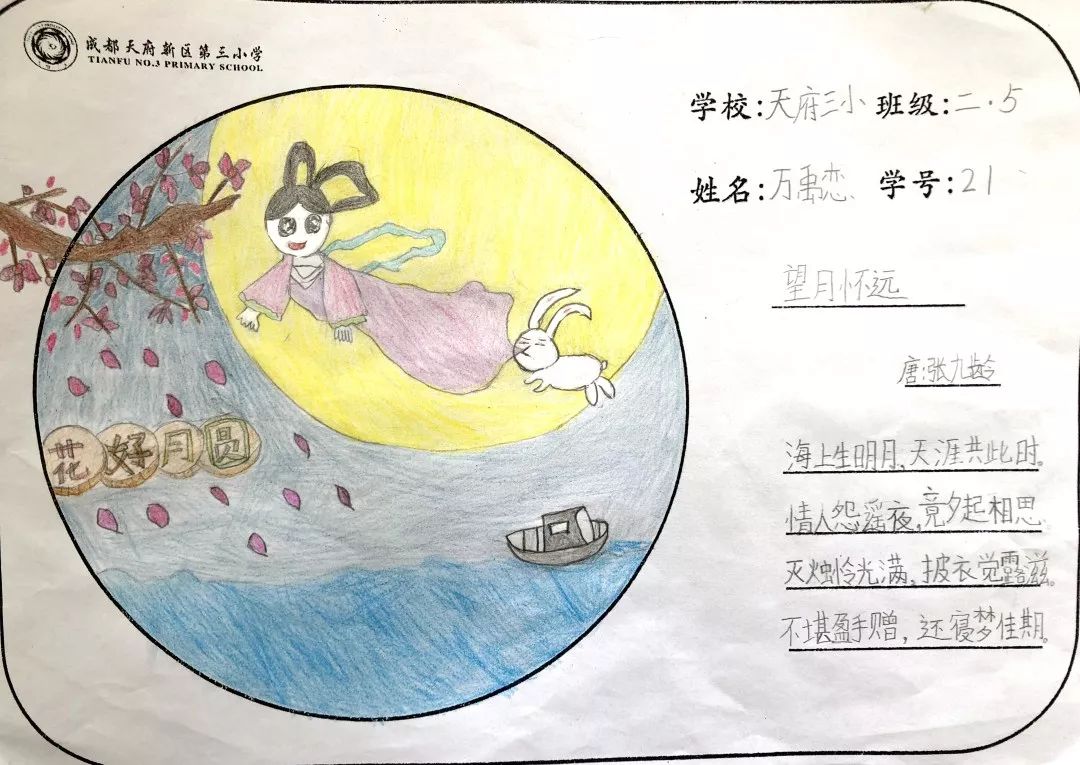 成都天府新区第三小学
TIANFU NO.3 PRIMARY SCHOOL
学校:天府三小 班级:二·5
姓名:万禹恋 学号:21
望月怀远
唐:张九龄
海上生明月,天涯共此时。
情人怨遥夜,竟夕起相思。
灭烛怜光满,披衣觉露滋。
不堪盈手赠,还寝梦佳期。
花好月圆